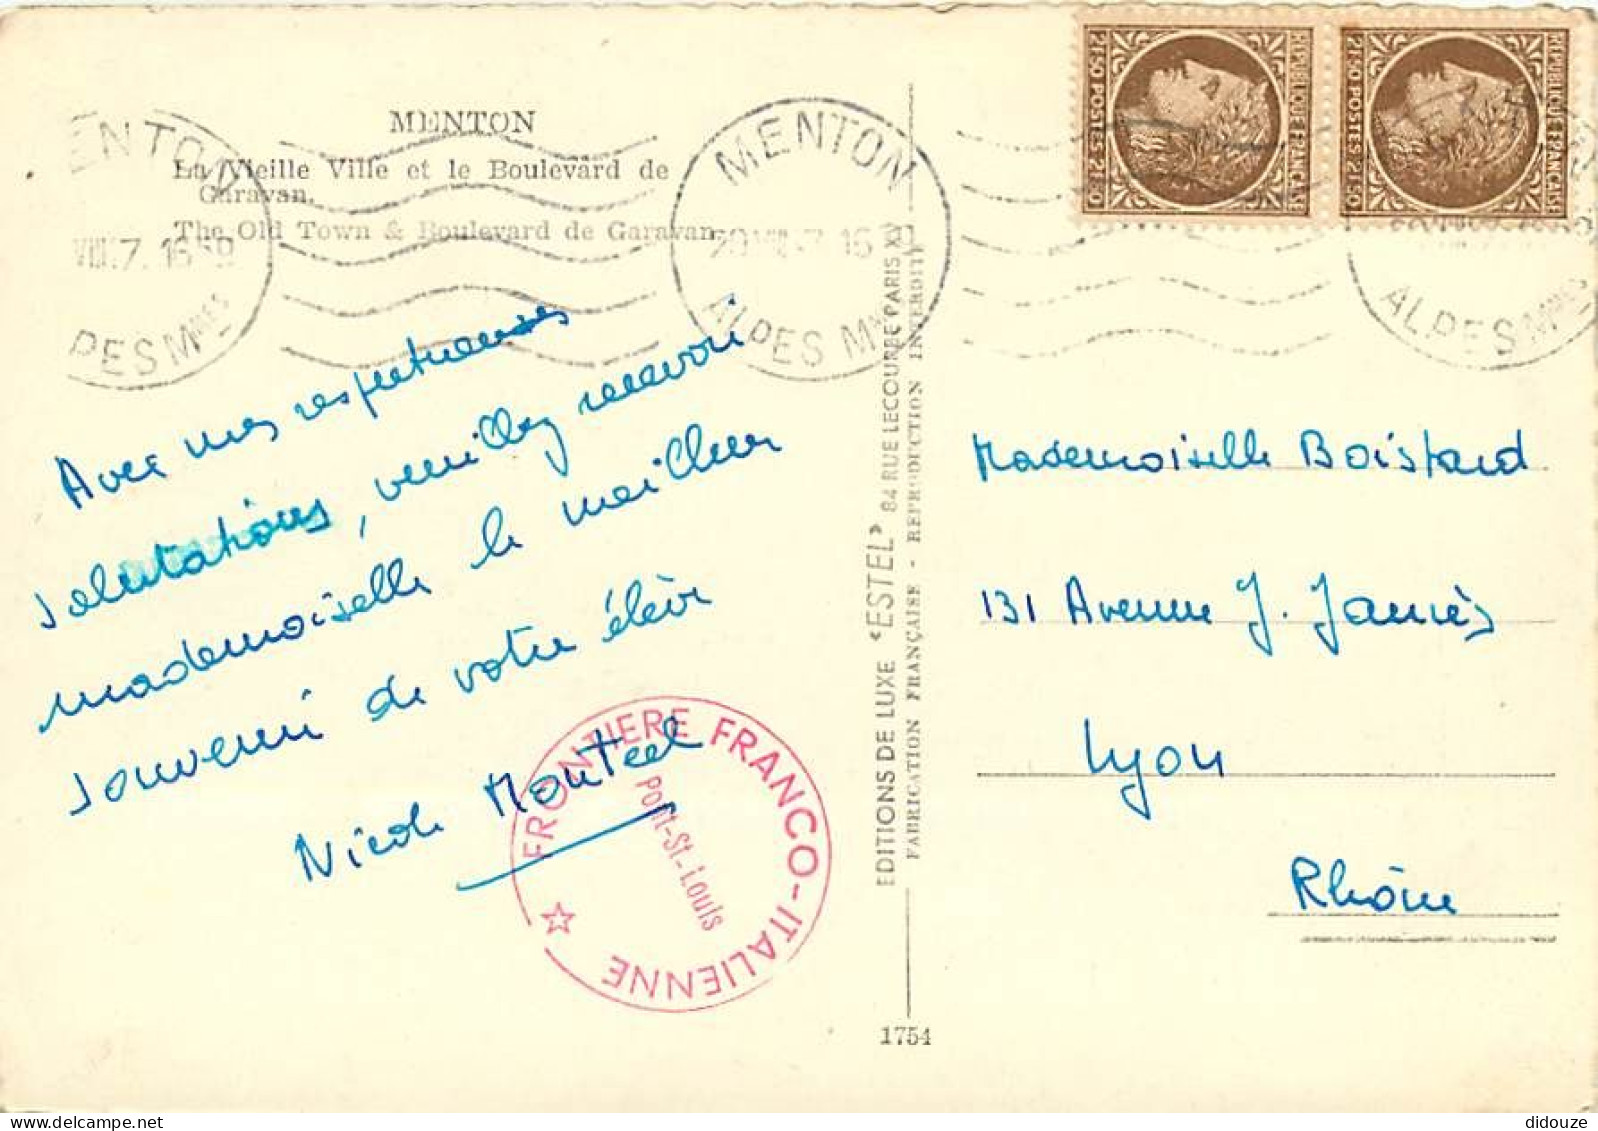 MENTON
La Vieille Ville et le Boulevard de
Garavan.
The Old Town & Boulevard de Garavan.
ENTON
VIII.7. 16
PES Mmes
MENTON
20 VIII 47 16
ALPES Mmes
ALPES Mmes
2F50 POSTES 2F50
REPUBLIQUE FRANÇAISE
2F50 POSTES 2F50
REPUBLIQUE FRANÇAISE
Avec mes respectueuses
salutations, veuillez recevoir
mademoiselle le meilleur
souvenir de votre élève
Nicole Monteel
FRONTIERE FRANCO-ITALIENNE
Pont-St-Louis
EDITIONS DE LUXE "ESTEL" 84 RUE LECOURBE PARIS XV
FABRICATION FRANÇAISE - REPRODUCTION INTERDITE
1754
Mademoiselle Boistard
131 Avenue J. Jaurès
Lyon
Rhône
didouze